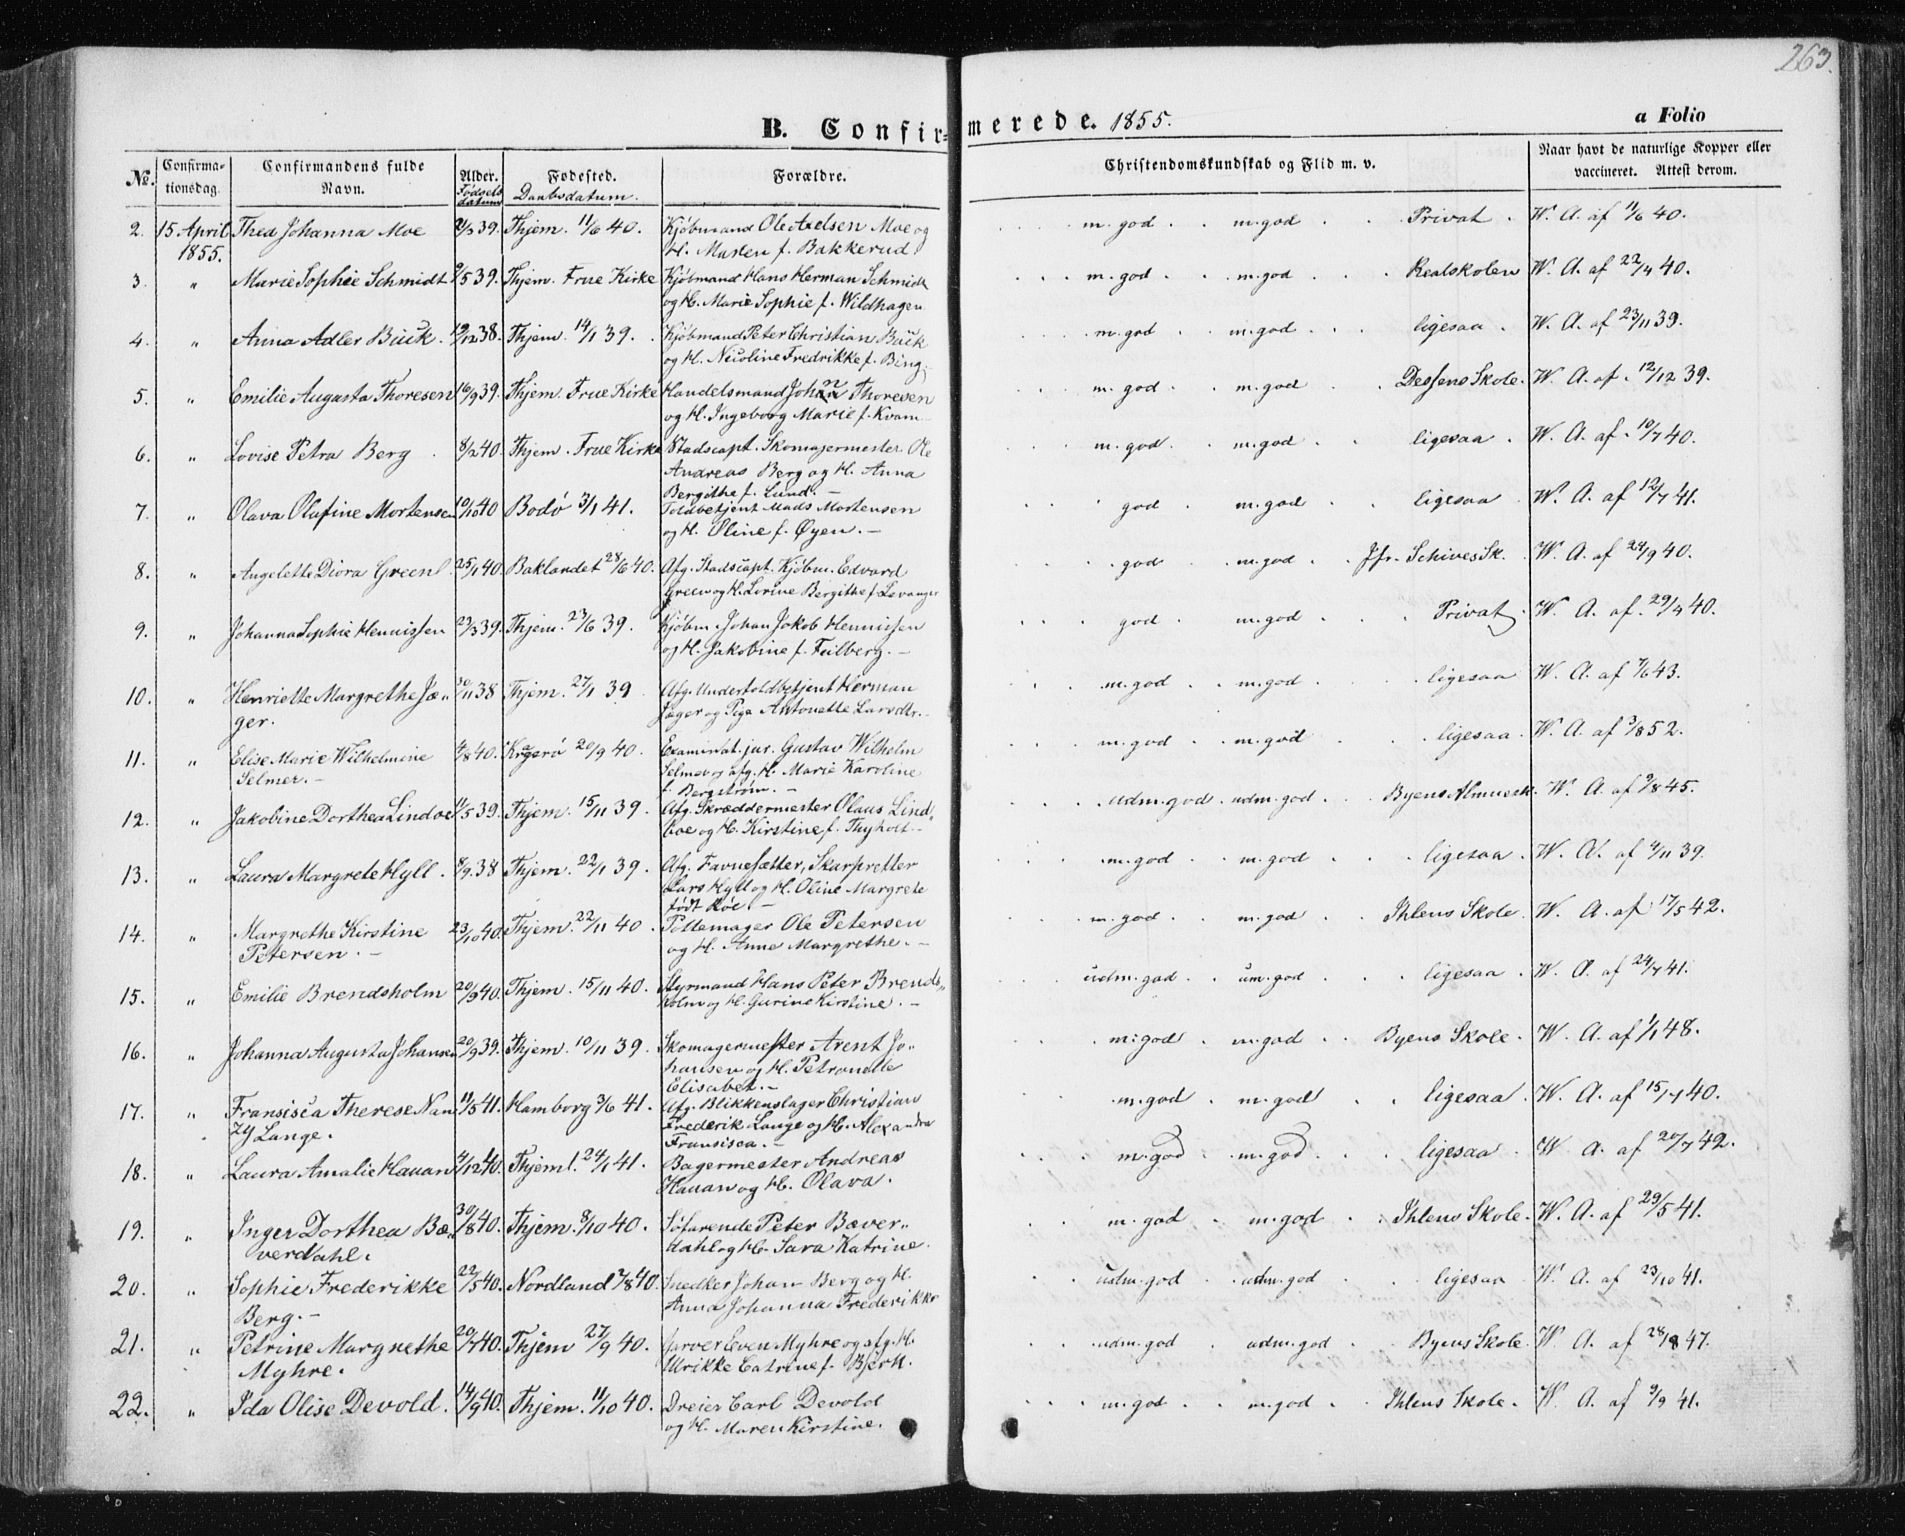 263.
B. Confir=merede. 1855.
a Folio
No. Confirma-tionsdag. Confirmandens fulde Navn. Alder. Fødsels datum Fødested. Daabsdatum. Forældre. Christendomskundskab og Flid m. v. Naar havt de naturlige Kopper eller vaccineret. Attest derom.
2. 15 April Thea Johanna Moe 39. Thjem. 11/6 40. Kjöbmand Ole Axelsen Moe og m. god m. god Privat W. A. af 11/6 40.
1855. H. Maren f. Bakkerud
3. " Marie Sophie Schmidt 9/5 39. Thjem. Frue Kirke Kjöbmand Hans Herman Schmidt m. god m. god Realskolen W. A. af 22/4 40.
og H. Marie Sophie f. Wildhagen
4. " Anna Adler Buck. 19/12 38. Thjem. 14/1 39. Kjöbmand Peter Christian Buck m. god m. god ligesaa W. A. af 23/11 39.
og H. Nicoline Fredrikke f. Bing.
5. " Emilie Augusta Thoresen 16/9 39. Thjem. Frue Kirke Handelsmand Johan Thoresen m. god m. god Dessens Skole. W. A. af 12/12 39.
og H. Ingeborg Marie f. Kvam
6. " Lovise Petra Berg 8/2 40. Thjem. Frue Kirke Stadscapt. Skomagermester Ole m. god m. god ligesaa W. A. af 10/7 40.
Andreas Berg og H. Anna
Bergithe f. Lund. -
7. " Olava Olufine Mortensen 10/10 40 Bodö 3/1 41. Toldbetjent Mads Mortensen god m. god ligesaa W. A. af 12/7 41.
og H. Oline f. Øyen. -
8. " Angelette Diora Green 25/1 40. Baklandet 28/6 40. Afg. Stadscapt. Kjöbm. Edvard god m. god Jfr. Schives Sk. W. A. af 24/9 40.
Green og H. Lorine Bergithe f. Levanger
9. " Johanna Sophie Hennissen 23/3 39. Thjem. 23/6 39. Kjöbm. Johan Jakob Hennissen god m. god Privat W. A. af 29/4 40.
og H. Jakobine f. Feilberg. -
10. " Henriette Margrethe Jæ= 30/11 38 Thjem. 27/1 39 Afg. Undertoldbetjent Herman m. god m. god ligesaa W. A. af 7/6 43.
ger. Jæger og Pige Antonette Larsdtr.
11. " Elise Marie Wilhelmine 4/8 40. Kragerö 20/9 40. Examinat. jur. Gustav Wilhelm m. god m. god ligesaa. W. A. af 3/8 52.
Selmer. - Selmer og afg. H. Marie Karoline
f. Bergström. -
12. " Jakobine Dorthea Lindoe 11/5 39. Thjem. 15/11 39. Afg. Skræddermester Olaus Lind= udm. god udm. god Byens Almuesk. W. A. af 9/8 45.
boe og H. Kirstine f. Thyholt.
13. " Laura Margrete Hyll. 8/9 38 Thjem. 22/1 39. Afg. Favnesætter, Skarpretter m. god m. god ligesaa W. A. af 4/11 39.
Lars Hyll og H. Oline Margrete
födt Röe. -
14. " Margrethe Kirstine 23/10 40. Thjem. 22/11 40. Pottemager Ole Petersen m. god m. god Ihlens Skole. W. A. af 17/5 42.
Petersen. - og H. Anne Margrethe. -
15. " Emilie Brendsholm 20/9 40. Thjem. 15/11 40. Styrmand Hans Peter Brends= udm. god um. god ligesaa W. A. af 24/7 41.
holm og H. Gurine Kirstine. -
16. " Johanna Augusta Johansen 20/9 39. Thjem. 10/11 39. Skomagermester Arent Jo= m. god m. god Byens Skole. W. A. af 1/1 48.
hansen og H. Petronelle
Elisabet. -
17. " Fransisca Therese Nan 11/5 41. Hamborg 3/6 41. Afg. Blikkenslager Christian m. god m. god ligesaa. W. A. af 15/7 40.
zy Lange. Frederik Lange og H. Alexandra
Fransisca. -
18. " Laura Amalie Hauan 4/12 40. Thjem. 24/1 41. Bagermester Andreas m. god m. god ligesaa W. A. af 20/7 42.
Hauan og H. Olava.
19. " Inger Dorthea Bæ= 30/8 40. Thjem. 8/10 40. Söfarende Peter Bæver= m. god m. god Ihlens Skole. W. A. af 29/5 41.
verdahl. dahl og H. Sara Katrine.
20. " Sophie Frederikke 22/5 40. Nordland 7/8 40. Snedker Johan Berg og H. udm. god udm. god ligesaa W. A. af 23/10 41.
Berg. - Anna Johanna Frederikke
21. " Petrine Margrethe 20/7 40. Thjem 27/9 40. Garver Even Myhre og afg. H. udm. god udm. god Byens Skole W. A. af 28/8 47.
Myhre. Ulrikke Catrine f. Björk.
22. " Ida Olise Devold. 14/9 40. Thjem. 11/10 40. Dreier Carl Devold m. god m. god Ihlens Skole. W. A. af 9/9 41.
og H. Maren Kirstine.